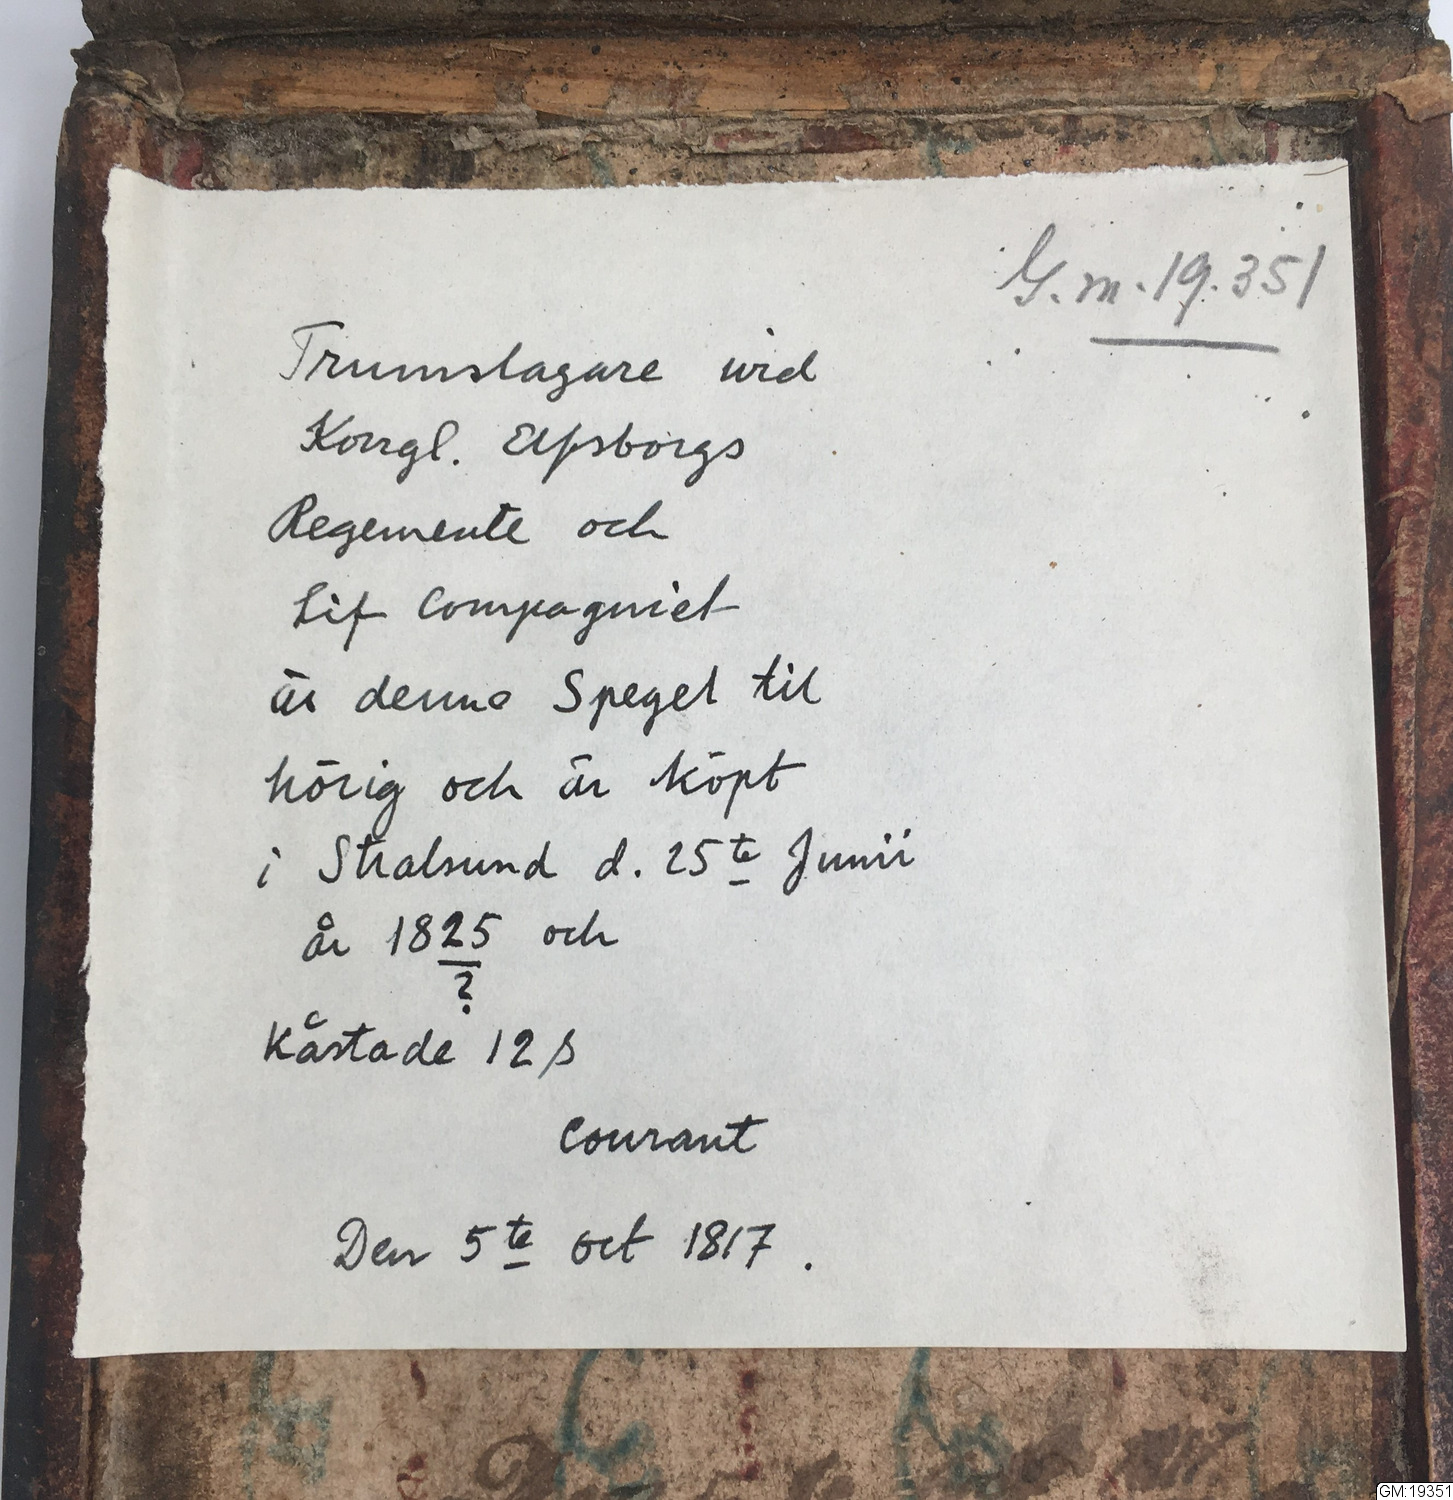 G.m.19.351
Trumslagare wid
Kongl. Elfsborgs
Regemente och
Lif Compagniet
är denna Spegel til
hörig och är köpt
i Stralsund d. 25te Junii
år 1825 och
?
Kåstade 12 s
Courant
Den 5te oct 1817.
GM:19351